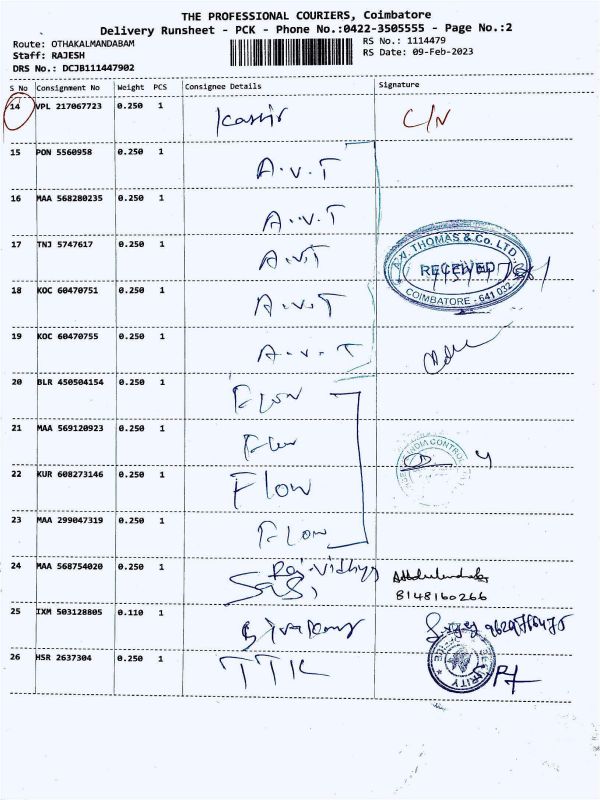 THE PROFESSIONAL COURIERS, Coimbatore
Delivery Runsheet - PCK - Phone No.:0422-3505555 - Page No.:2
Route: OTHAKALMANDABAM
RS No.: 1114479
Staff: RAJESH
RS Date: 09-Feb-2023
DRS No.: DCJB111447902
S No Consignment No Weight PCS Consignee Details Signature
14 VPL 217067723 0.250 1 C/N
15 PON 5560958 0.250 1 A.V.T
16 MAA 568280235 0.250 1 A.V.T
17 TNJ 5747617 0.250 1 A.V.T
18 KOC 60470751 0.250 1 A.V.T
19 KOC 60470755 0.250 1 A.V.T
A.V. THOMAS & Co. LTD.,
RECEIVED
COIMBATORE - 641 032
20 BLR 450504154 0.250 1 Flow
21 MAA 569120923 0.250 1 Flow
INDIA CONTROL
22 KUR 608273146 0.250 1 Flow
23 MAA 299047319 0.250 1 Flow
24 MAA 568754020 0.250 1
8148160266
25 IXM 503128805 0.110 1
26 HSR 2637304 0.250 1 TTK
SECURITY